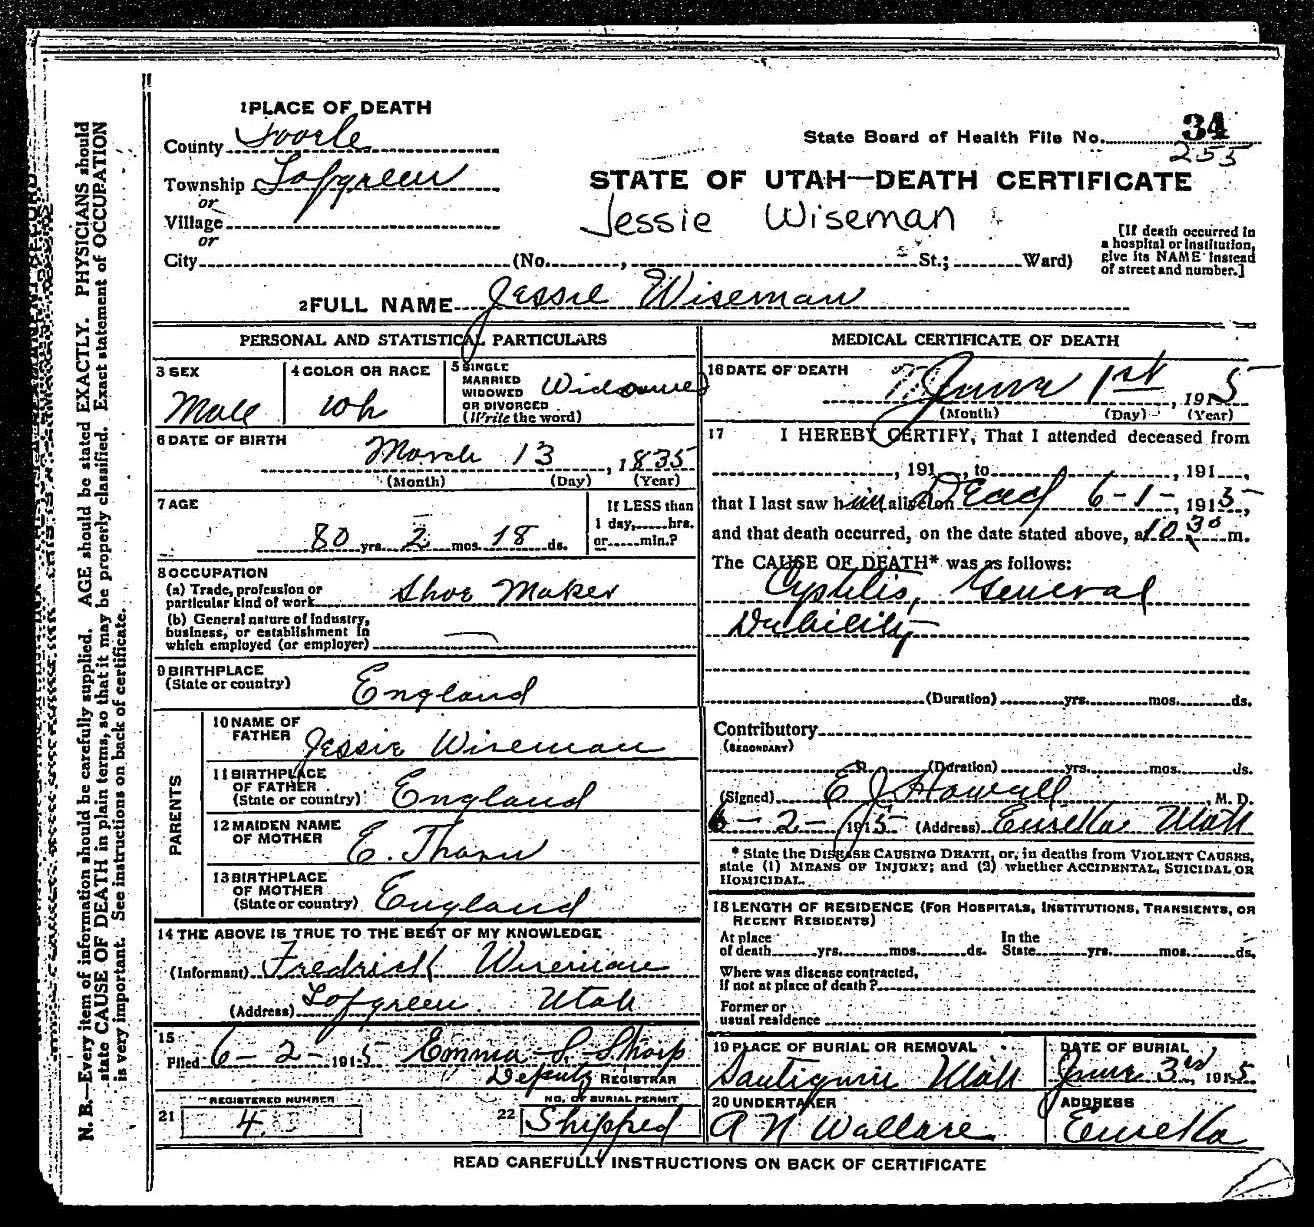 1 PLACE OF DEATH
County Tooele
State Board of Health File No. 34
255
Township Lofgreen
or
STATE OF UTAH—DEATH CERTIFICATE
Village
or
Jessie Wiseman
[If death occurred in a hospital or institution, give its NAME instead of street and number.]
City (No. , St.; Ward)
2 FULL NAME Jessie Wiseman
PERSONAL AND STATISTICAL PARTICULARS
3 SEX
Male
4 COLOR OR RACE
Wh
5 SINGLE
MARRIED
WIDOWED
OR DIVORCED
(Write the word)
Widowed
6 DATE OF BIRTH
March 13, 1835
(Month) (Day) (Year)
7 AGE
80 yrs. 2 mos. 18 ds.
If LESS than
1 day, hrs.
or min.?
8 OCCUPATION
(a) Trade, profession or
particular kind of work Shoe Maker
(b) General nature of industry,
business, or establishment in
which employed (or employer) —
9 BIRTHPLACE
(State or country) England
PARENTS
10 NAME OF
FATHER Jessie Wiseman
11 BIRTHPLACE
OF FATHER
(State or country) England
12 MAIDEN NAME
OF MOTHER E.
13 BIRTHPLACE
OF MOTHER
(State or country) England
14 THE ABOVE IS TRUE TO THE BEST OF MY KNOWLEDGE
(Informant) Fredrick Wiseman
(Address) Lofgreen Utah
15
Filed 6-2-1915 Emma S. Sharp
Deputy REGISTRAR
REGISTERED NUMBER
21 4
NO. OF BURIAL PERMIT
22 Shipped
MEDICAL CERTIFICATE OF DEATH
16 DATE OF DEATH
June 1st, 1915
(Month) (Day) (Year)
17 I HEREBY CERTIFY, That I attended deceased from
, 191 , to , 191 ,
that I last saw him alive on Dead 6-1-, 1915,
and that death occurred, on the date stated above, at 10 30 m.
The CAUSE OF DEATH* was as follows:
Cystitis, General
Dubility
(Duration) yrs. mos. ds.
Contributory
(SECONDARY)
(Duration) yrs. mos. ds.
(Signed) E J Howell, M. D.
6-2-1915 (Address) Eureka Utah
* State the DISEASE CAUSING DEATH, or, in deaths from VIOLENT CAUSES,
state (1) MEANS OF INJURY; and (2) whether ACCIDENTAL, SUICIDAL OR
HOMICIDAL.
18 LENGTH OF RESIDENCE (FOR HOSPITALS, INSTITUTIONS, TRANSIENTS, OR
RECENT RESIDENTS)
At place of death yrs. mos. ds. In the State yrs. mos. ds.
Where was disease contracted,
if not at place of death?
Former or
usual residence
19 PLACE OF BURIAL OR REMOVAL
Utah
DATE OF BURIAL
June 3rd, 1915
20 UNDERTAKER
A N Wallace
ADDRESS
Eureka
READ CAREFULLY INSTRUCTIONS ON BACK OF CERTIFICATE
N. B.—Every item of information should be carefully supplied. AGE should be stated EXACTLY. PHYSICIANS should
state CAUSE OF DEATH in plain terms, so that it may be properly classified. Exact statement of OCCUPATION
is very important. See instructions on back of certificate.